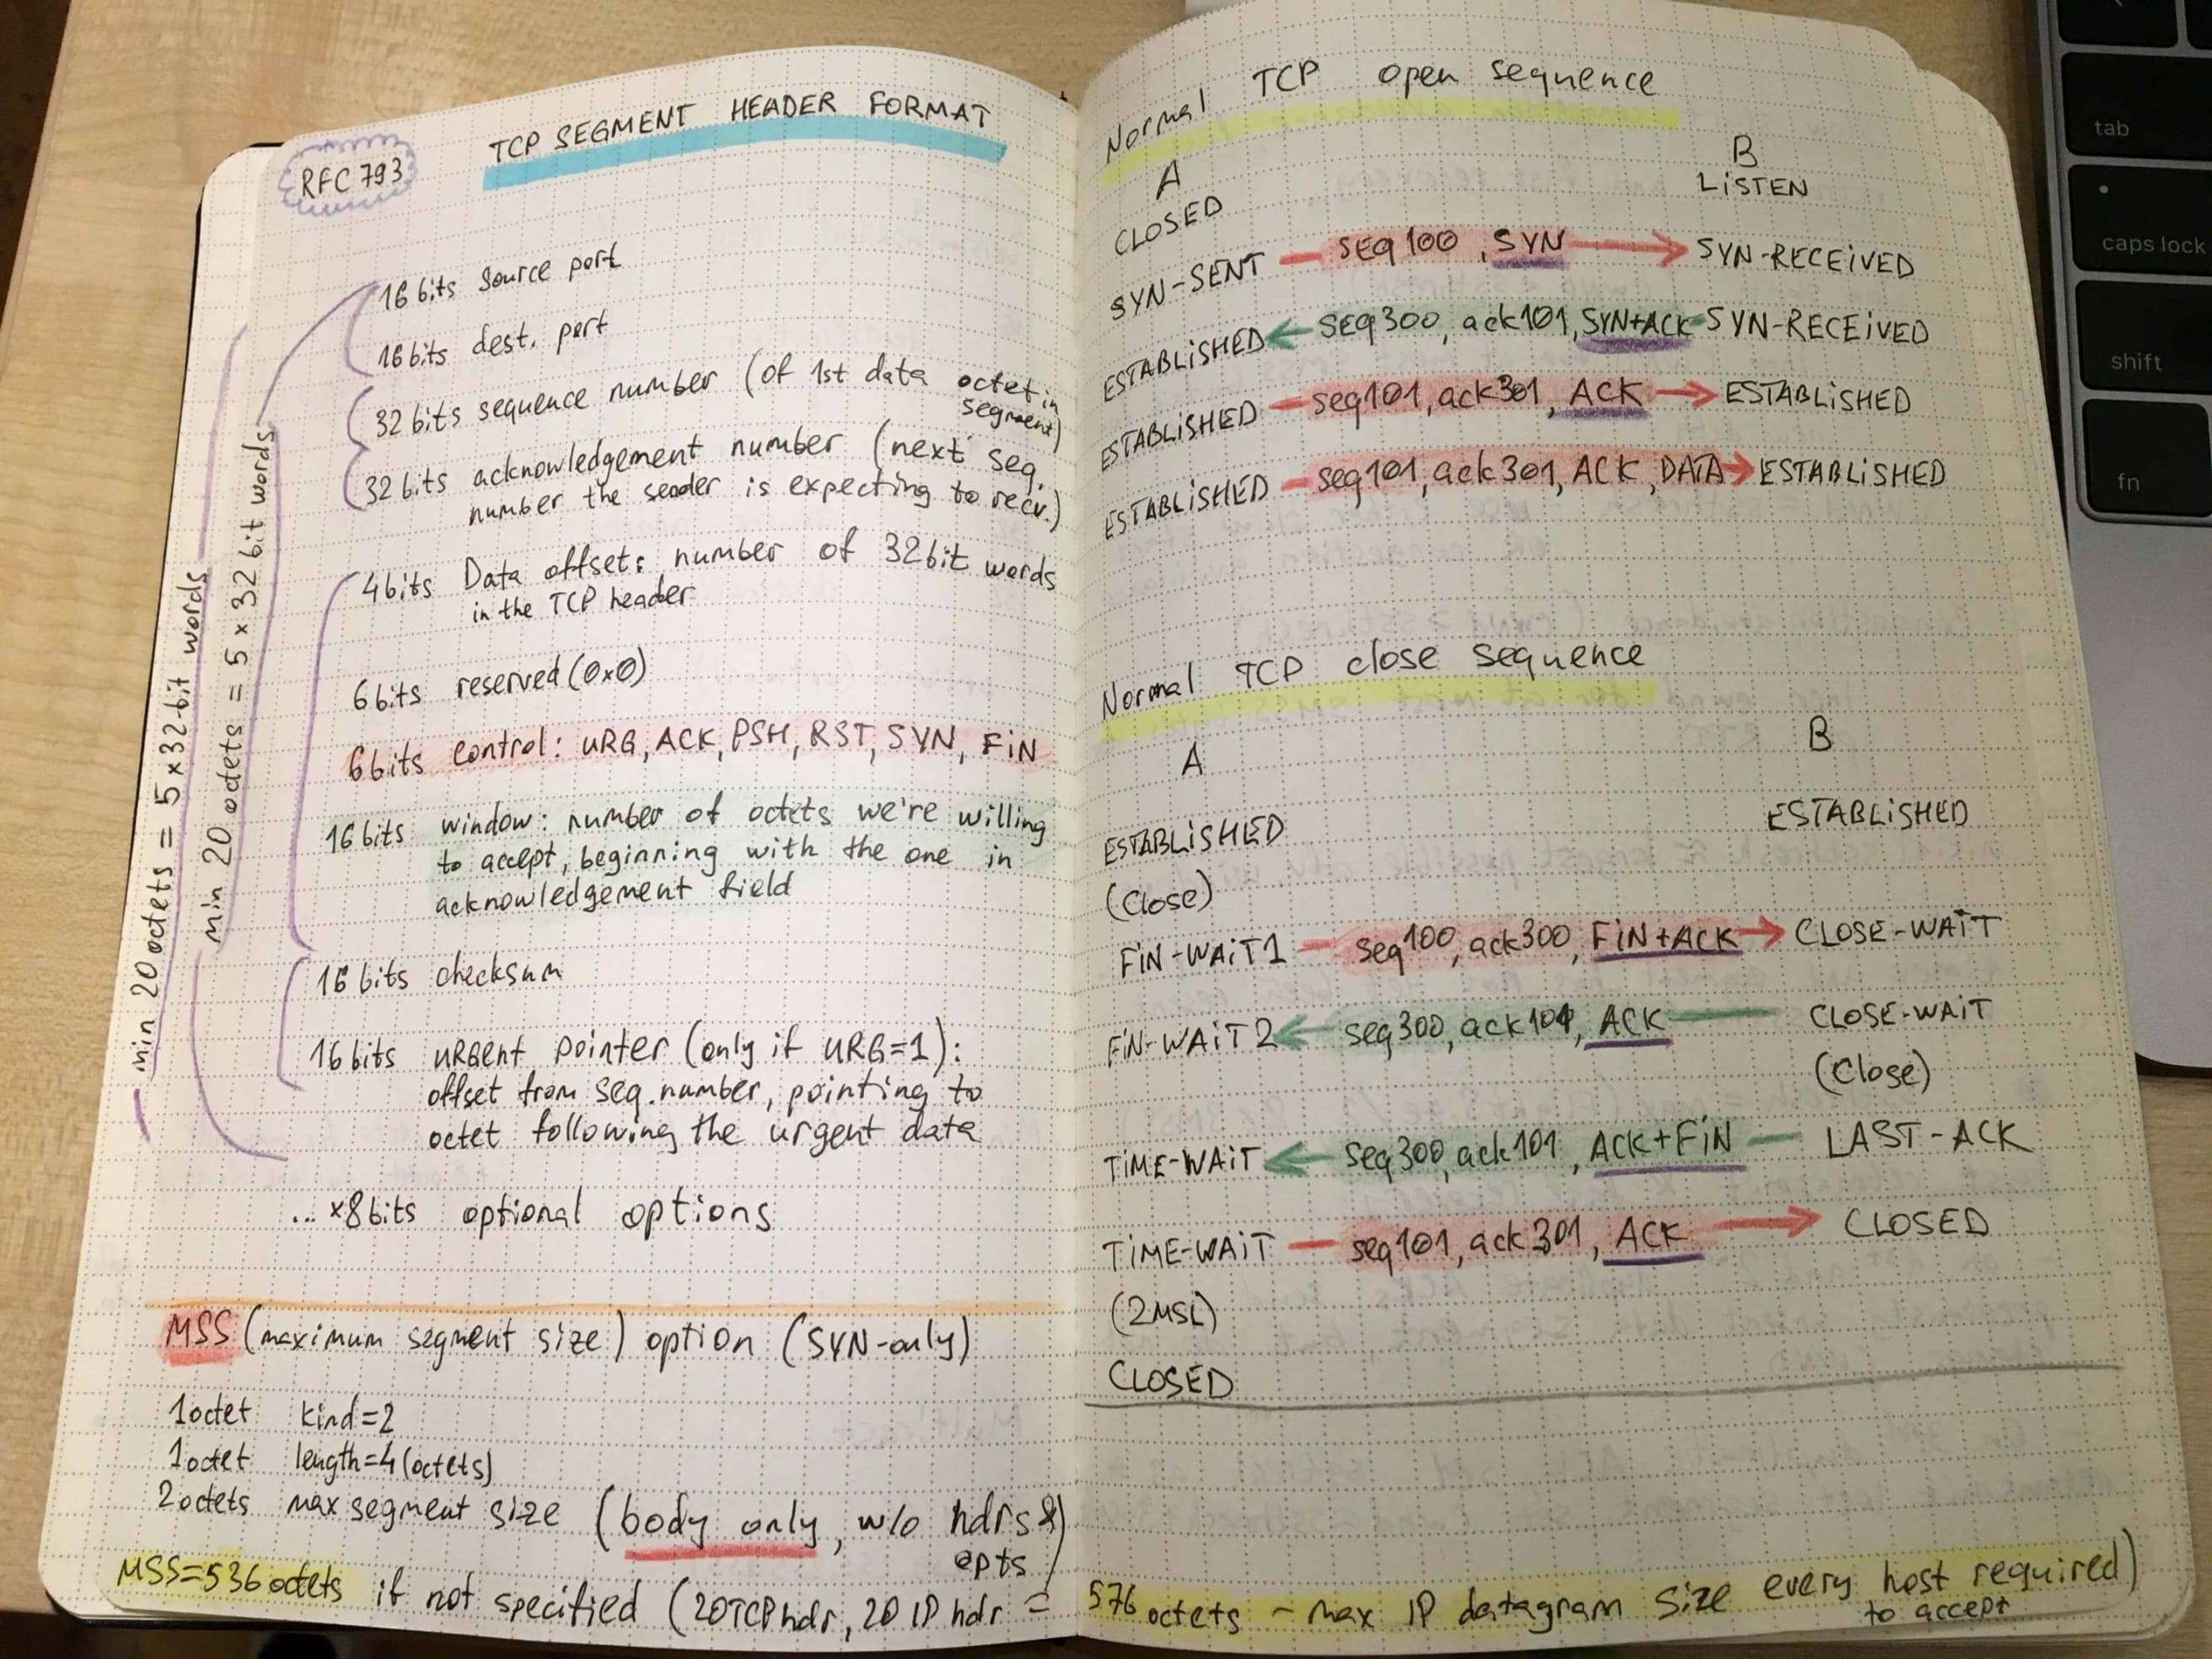 RFC 793
TCP SEGMENT HEADER FORMAT
16 bits source port
16 bits dest. port
32 bits sequence number (of 1st data octet in
segment)
32 bits acknowledgement number (next seq.
number the sender is expecting to recv.)
4 bits Data offset: number of 32 bit words
in the TCP header
6 bits reserved (0x0)
6 bits control: URG, ACK, PSH, RST, SYN, FIN
16 bits window: number of octets we're willing
to accept, beginning with the one in
acknowledgement field
16 bits checksum
16 bits URGent pointer (only if URG=1):
offset from seq. number, pointing to
octet following the urgent data
... x8 bits optional options
min 20 octets = 5 x 32-bit words
min 20 octets = 5 x 32 bit words
MSS (maximum segment size) option (SYN-only)
1 octet kind=2
1 octet length=4 (octets)
2 octets max segment size (body only, w/o hdrs &
opts)
MSS=536 octets if not specified (20 TCP hdr, 20 IP hdr =
Normal TCP open sequence
A B
CLOSED LISTEN
SYN-SENT — SEQ 100, SYN → SYN-RECEIVED
ESTABLISHED ← SEQ 300, ack 101, SYN+ACK - SYN-RECEIVED
ESTABLISHED — seq 101, ack 301, ACK → ESTABLISHED
ESTABLISHED — seq 101, ack 301, ACK, DATA → ESTABLISHED
Normal TCP close sequence
A B
ESTABLISHED ESTABLISHED
(Close)
FIN-WAIT 1 — seq 100, ack 300, FIN+ACK → CLOSE-WAIT
FIN-WAIT 2 ← seq 300, ack 101, ACK — CLOSE-WAIT
(Close)
TIME-WAIT ← seq 300, ack 101, ACK+FIN — LAST-ACK
TIME-WAIT — seq 101, ack 301, ACK → CLOSED
(2MSL)
CLOSED
576 octets - max IP datagram size every host required)
to accept
tab
caps lock
shift
fn